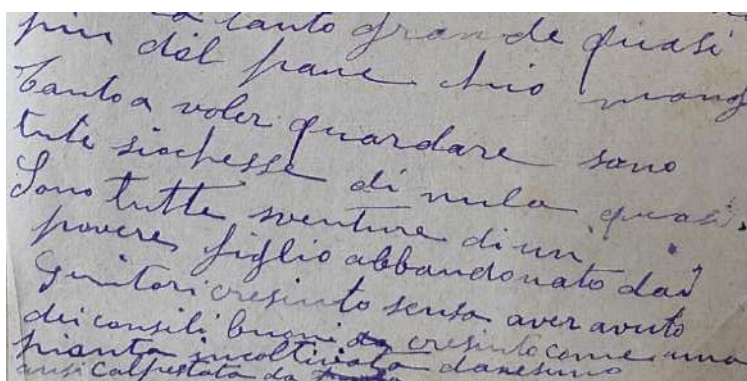 tanto grande quasi
piu del pane chio mang
tanto a voler guardare sono
tute siochesse di nula quasi.
Sono tutte sventure di un
povere figlio abbandonato dai
Genitori cresiuto sensa aver avuto
dei consili buoni cresiuto come una
pianta incoltivata danesuno
ansi calpestata da